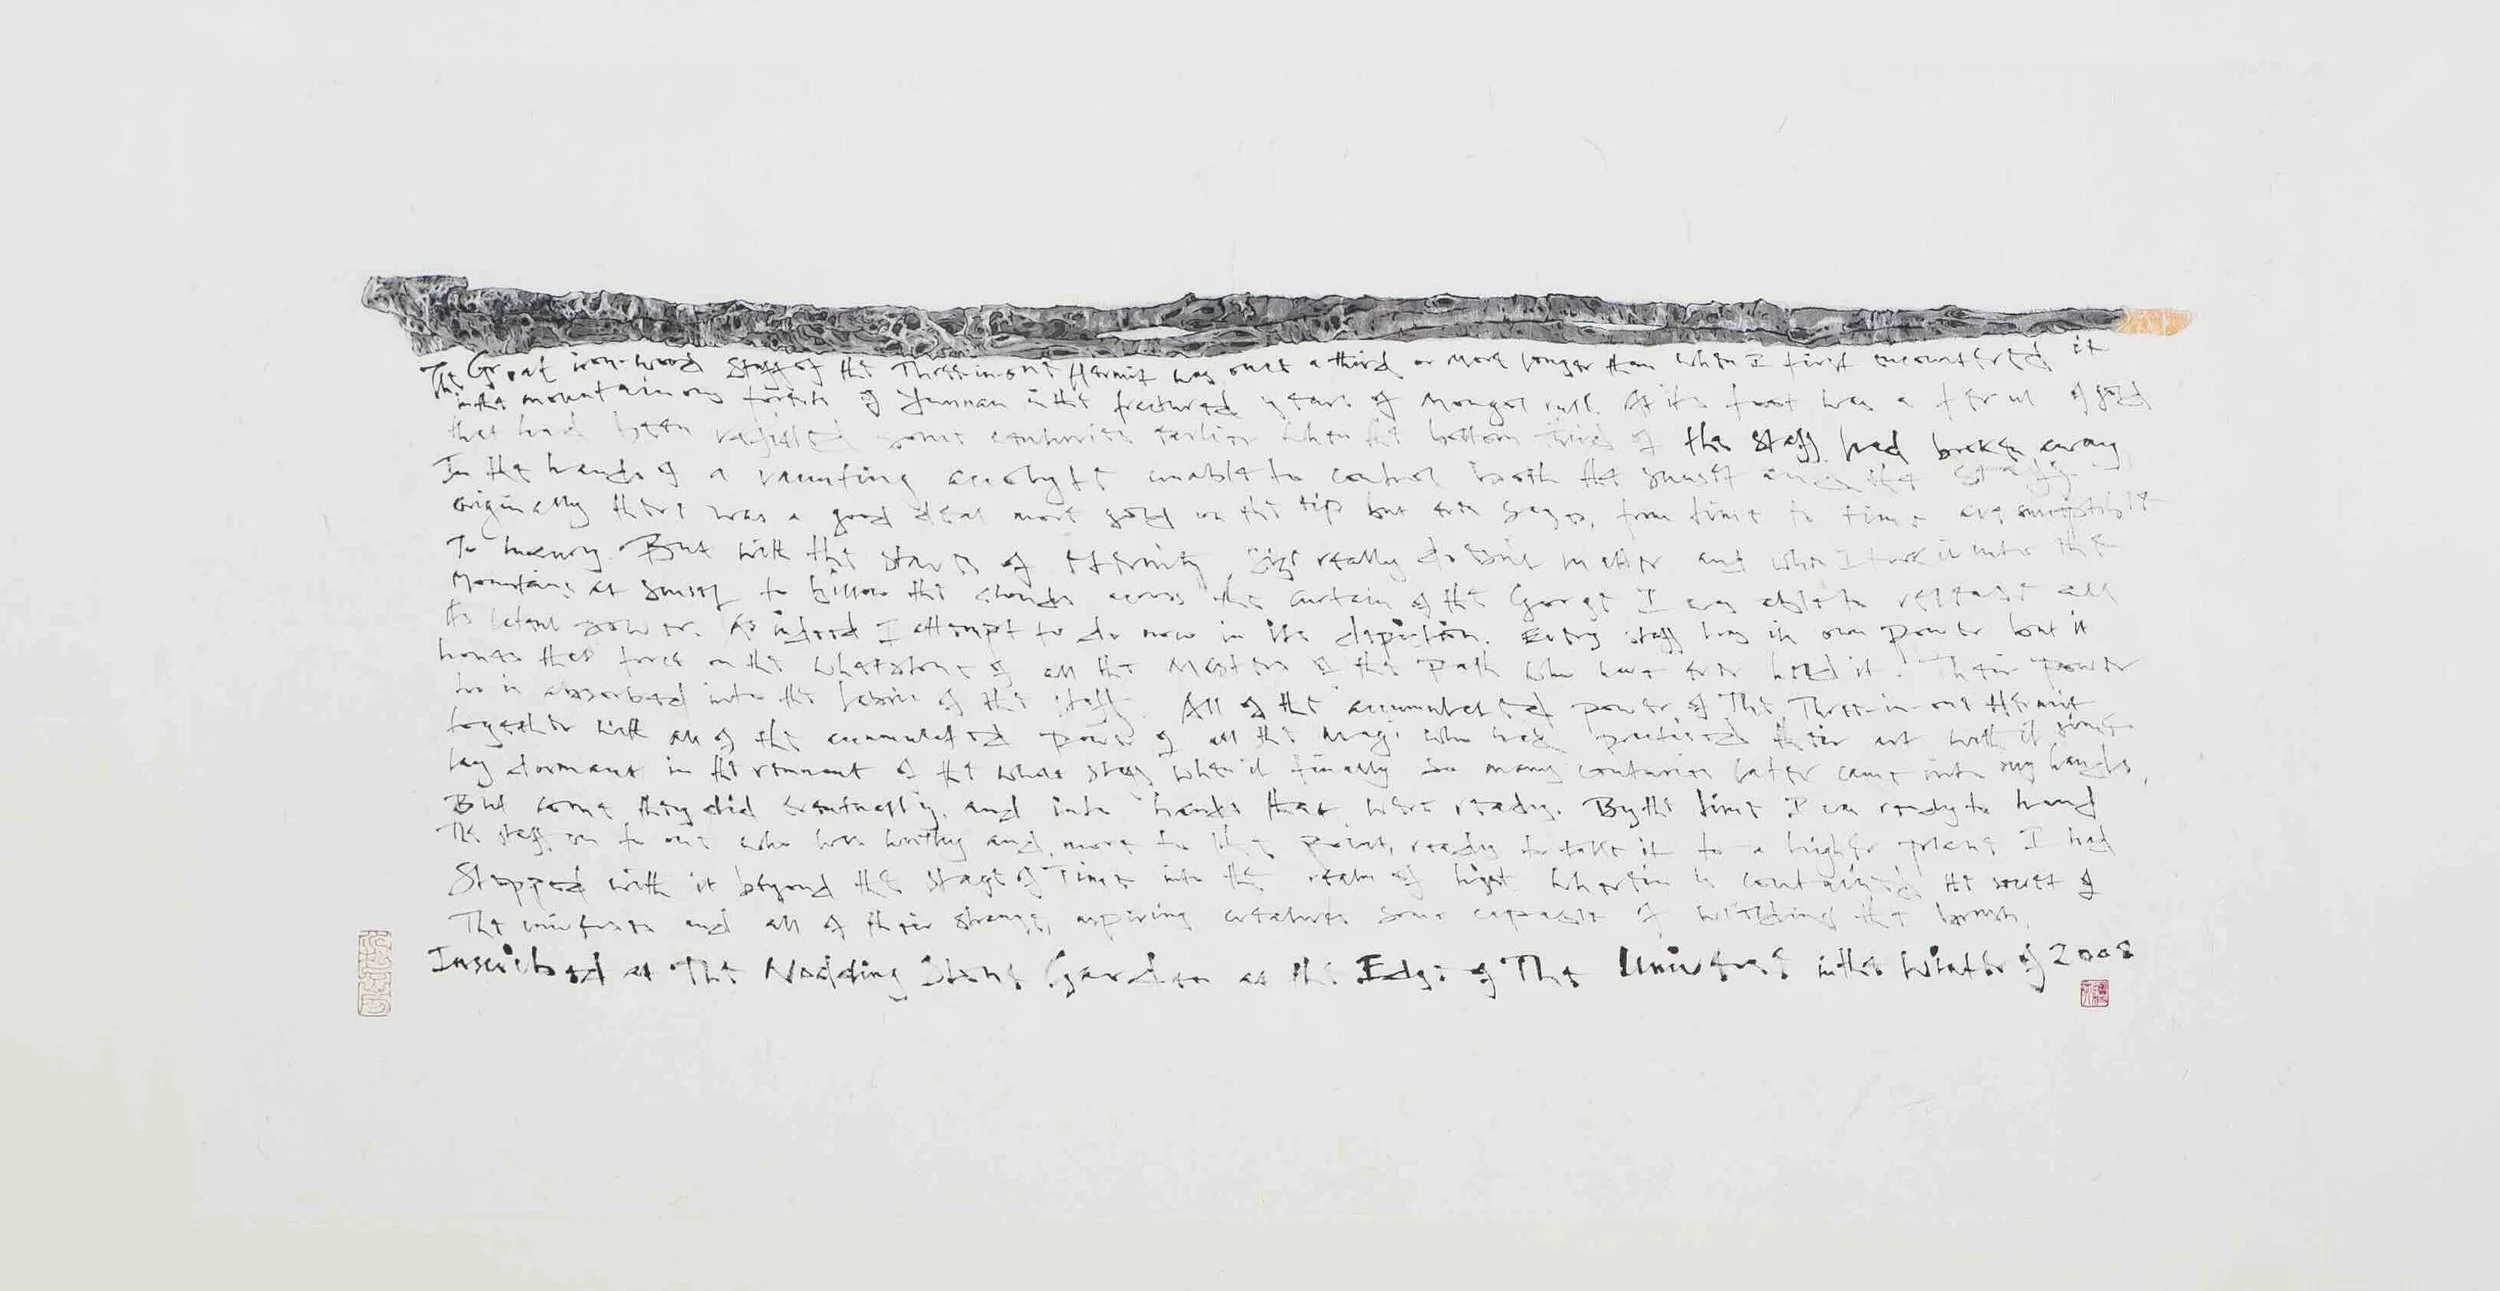 The Great iron-wood Staff of the Three-in-one Hermit was once a third or more longer than when I first encountered it
in the mountainous forests of Yunnan in the fractured years of Mongol rule. At its foot was a ferul of gold
that had been some centuries earlier when the bottom third of the staff had broken away
In the hands of a vaunting acolyte unable to control both the sunset and the staff.
originally there was a good deal more gold on the tip but even Sages, from time to time are susceptible
To luxury. But with the staves of Eternity, Size really doesn't matter and when I took it into the
Mountains at sunset to billow the clouds across the curtain of the Gorge I was able to release all
Its latent power. As indeed I attempt to do now in its depiction. Every staff has its own power but it
hones that force on the whetstone of all the Masters of the Path who have ever held it. Their power
too is absorbed into the fabric of the staff. All of the accumulated power of The Three-in-one Hermit
together with all of the accumulated power of all the magi who had practised their art with it since
lay dormant in the remnant of the whole staff when it finally so many centuries later came into my hands,
But come they did eventually, and into hands that were ready. By the time I was ready to hand
The staff on to one who was worthy and, more to the point, ready to take it to a higher plane I had
Stepped with it beyond the stage of Time into the realm of light wherein is contained the secret of
The universes and all of their strange, aspiring creatures some capable of wielding the brush.
Inscribed at The Nodding Stone Garden at the Edge of The Universe in the Winter of 2008